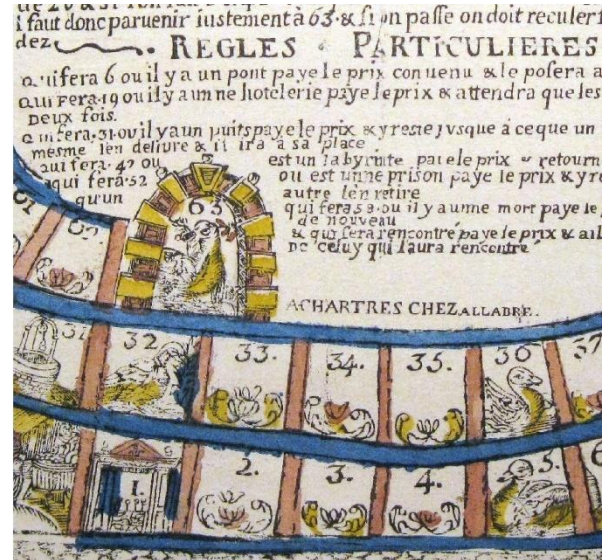 i faut donc paruenir iustement à 63. & si on passe on doit reculer
dez
REGLES PARTICULIERES
qui fera 6 ou il y a un pont paye le prix conuenu & le posera a
qui fera.19 ou il y a un ne hotelerie paye le prix & attendra que les
deux fois.
qui fera.31.ou il y a un puits paye le prix & y reste jusque à ce que un
mesme l'en deliure & il ira à sa place
qui fera. 42 ou est un labyrinte paie le prix & retourn
qui fera.52 ou est unne prison paye le prix & y re
qu'un autre l'en retire
qui fera 58. ou il y a unne mort paye le
de nouveau
& qui sera rencontré paye le prix & ail
ne celuy qui l'aura rencontré
63
A CHARTRES CHEZ ALLABRE.
31
32
33.
34.
35.
36
37
1.
2.
3.
4.
5.